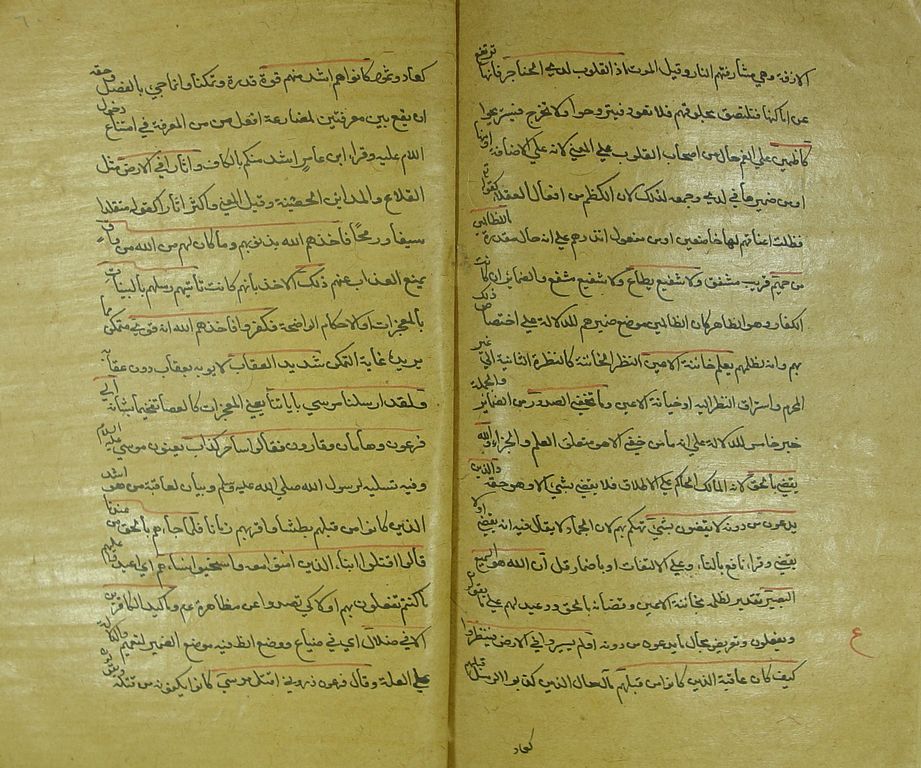 الازفة وهي مشارفتهم النار وقيل الموت اذ القلوب لدي الحناجر فانها ترتفع
عن اماكنها فتلتصق بحلوقهم فلا تعود فيتروحوا ولا تخرج فيستريحوا
كاظمين علي الغم حال من اصحاب القلوب علي المعني لانه علي الاضافة او منها
او من ضميرها في لدي وجمعه لذلك لان الكظم من افعال العقلاء كقوله
فظلت اعناقهم لها خاضعين او من مفعول انذرهم علي انه حال مقدرة ما للظالمين
من حميم قريب مشفق ولا شفيع يطاع ولا شفيع مشفع والضمائر ان كانت
للكفار وهو الظاهر كان الظالمين موضع ضميرهم للدلالة علي اختصاص ذلك
بهم وانه لظلمهم يعلم خائنة الاعين النظر الخائنة كالنظرة الثانية الي غير
المحرم واستراق النظر اليه او خيانة الاعين وما تخفي الصدور من الضمائر والجملة
خبر خامس للدلالة علي انه ما من خفي الا هو متعلق العلم والجزاء والله
يقضي بالحق لانه المالك الحاكم علي الاطلاق فلا يقضي بشيء الا وهو حقه والذين
يدعون من دونه لا يقضون بشيء تهكم بهم لان الجماد لا يقال فيه انه يقضي او لا
يقضي وقرا نافع بالتاء علي الالتفات او باضمار قل ان الله هو السميع
البصير تقرير لعلمه بخائنة الاعين وقضائه بالحق ووعيد لهم علي ما يقولون
ويفعلون وتعريض بحال ما يدعون من دونه اولم يسيروا في الارض فينظروا
كيف كان عاقبة الذين كانوا من قبلهم مآل حال الذين كذبوا الرسل قبلهم
كعاد
كعاد وثمود كانوا هم اشد منهم قوة قدرة وتمكنا وانما جي بالفصل وحقه
ان يقع بين معرفتين لمضارعة افعل من من المعرفة في امتناع دخول
اللام عليه وقرا ابن عامر اشد منكم بالكاف واثارا في الارض مثل
القلاع والمدائن الحصينة وقيل المعني واكثر اثارا كقوله متقلدا
سيفا ورمحا فاخذهم الله بذنوبهم وما كان لهم من الله من واق
يمنع العذاب عنهم ذلك الاخذ بانهم كانت تاتيهم رسلهم بالبينات
بالمعجزات او الاحكام الواضحة فكفروا فاخذهم الله انه قوي متمكن مما
يريده غاية التمكن شديد العقاب لا يوبه بعقاب دون عقابه
ولقد ارسلنا موسي باياتنا يعني المعجزات كالعصا تفخيما لشانه الي
فرعون وهامان وقارون فقالوا ساحر كذاب يعنون موسي عليه السلام
وفيه تسلية لرسول الله صلي الله عليه وسلم وبيان لعاقبة من هو اشد
الذين كانوا من قبلهم بطشا واقربهم زمانا فلما جاءهم بالحق من عندنا
قالوا اقتلوا ابناء الذين امنوا معه واستحيوا نساءهم اي اعيدوا عليهم
ما كنتم تفعلون بهم اولا كي تصدوا عن مظاهرة موسي وما كيد الكافرين
الا في ضلال اي في ضياع ووضع الظاهر فيه موضع الضمير لتعميم الحكم والدلالة
علي العلة وقال فرعون ذروني اقتل موسي كانوا يكفونه من قتله ويقولون